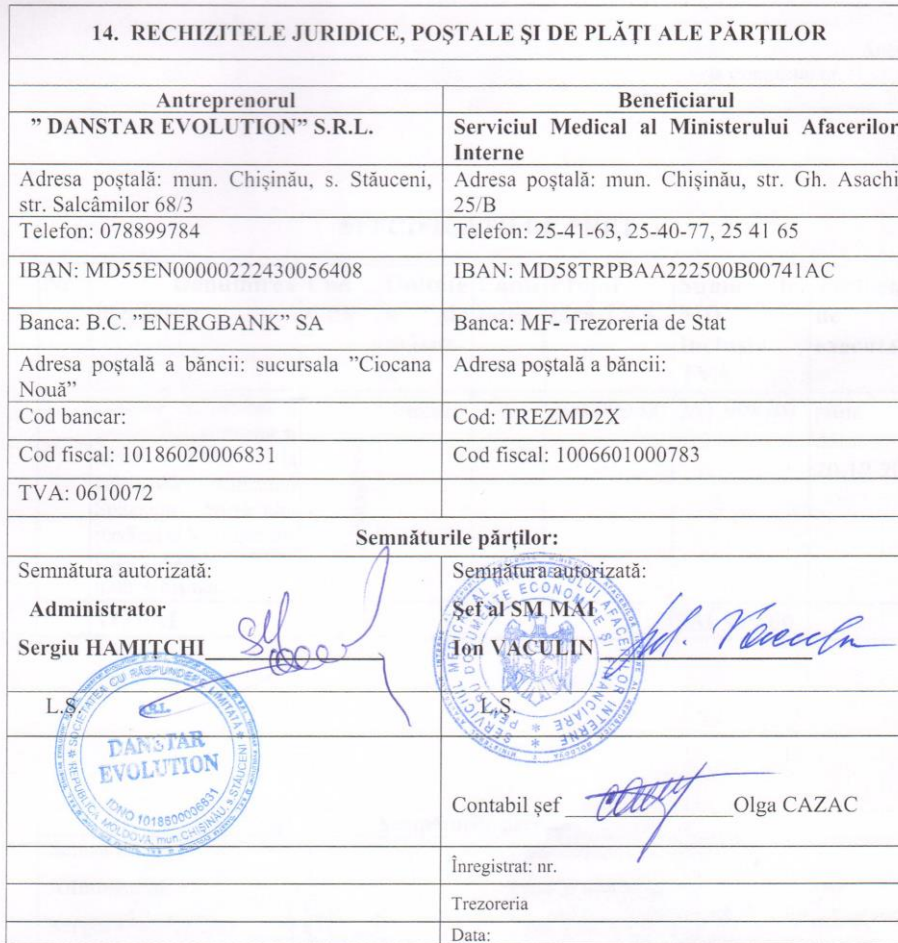 14. RECHIZITELE JURIDICE, POȘTALE ȘI DE PLĂȚI ALE PĂRȚILOR
Antreprenorul
Beneficiarul
” DANSTAR EVOLUTION” S.R.L.
Serviciul Medical al Ministerului Afacerilor
Interne
Adresa poștală: mun. Chișinău, s. Stăuceni,
str. Salcâmilor 68/3
Adresa poștală: mun. Chișinău, str. Gh. Asachi
25/B
Telefon: 078899784
Telefon: 25-41-63, 25-40-77, 25 41 65
IBAN: MD55EN00000222430056408
IBAN: MD58TRPBAA222500B00741AC
Banca: B.C. ”ENERGBANK” SA
Banca: MF- Trezoreria de Stat
Adresa poștală a băncii: sucursala ”Ciocana
Nouă”
Adresa poștală a băncii:
Cod bancar:
Cod: TREZMD2X
Cod fiscal: 10186020006831
Cod fiscal: 1006601000783
TVA: 0610072
Semnăturile părților:
Semnătura autorizată:
Administrator
Sergiu HAMIȚCHI
L.S.
Semnătura autorizată:
Șef al SM MAI
Ion VACULIN
L.S.
SERVICIUL MEDICAL AL MINISTERULUI AFACERILOR INTERNE
PENTRU DOCUMENTE ECONOMICE ȘI FINANCIARE
SOCIETATEA CU RĂSPUNDERE LIMITATĂ
S.R.L.
DANSTAR
EVOLUTION
IDNO 1018600006831
REPUBLICA MOLDOVA, mun. CHIȘINĂU, s. STĂUCENI
Contabil șef Olga CAZAC
Înregistrat: nr.
Trezoreria
Data: